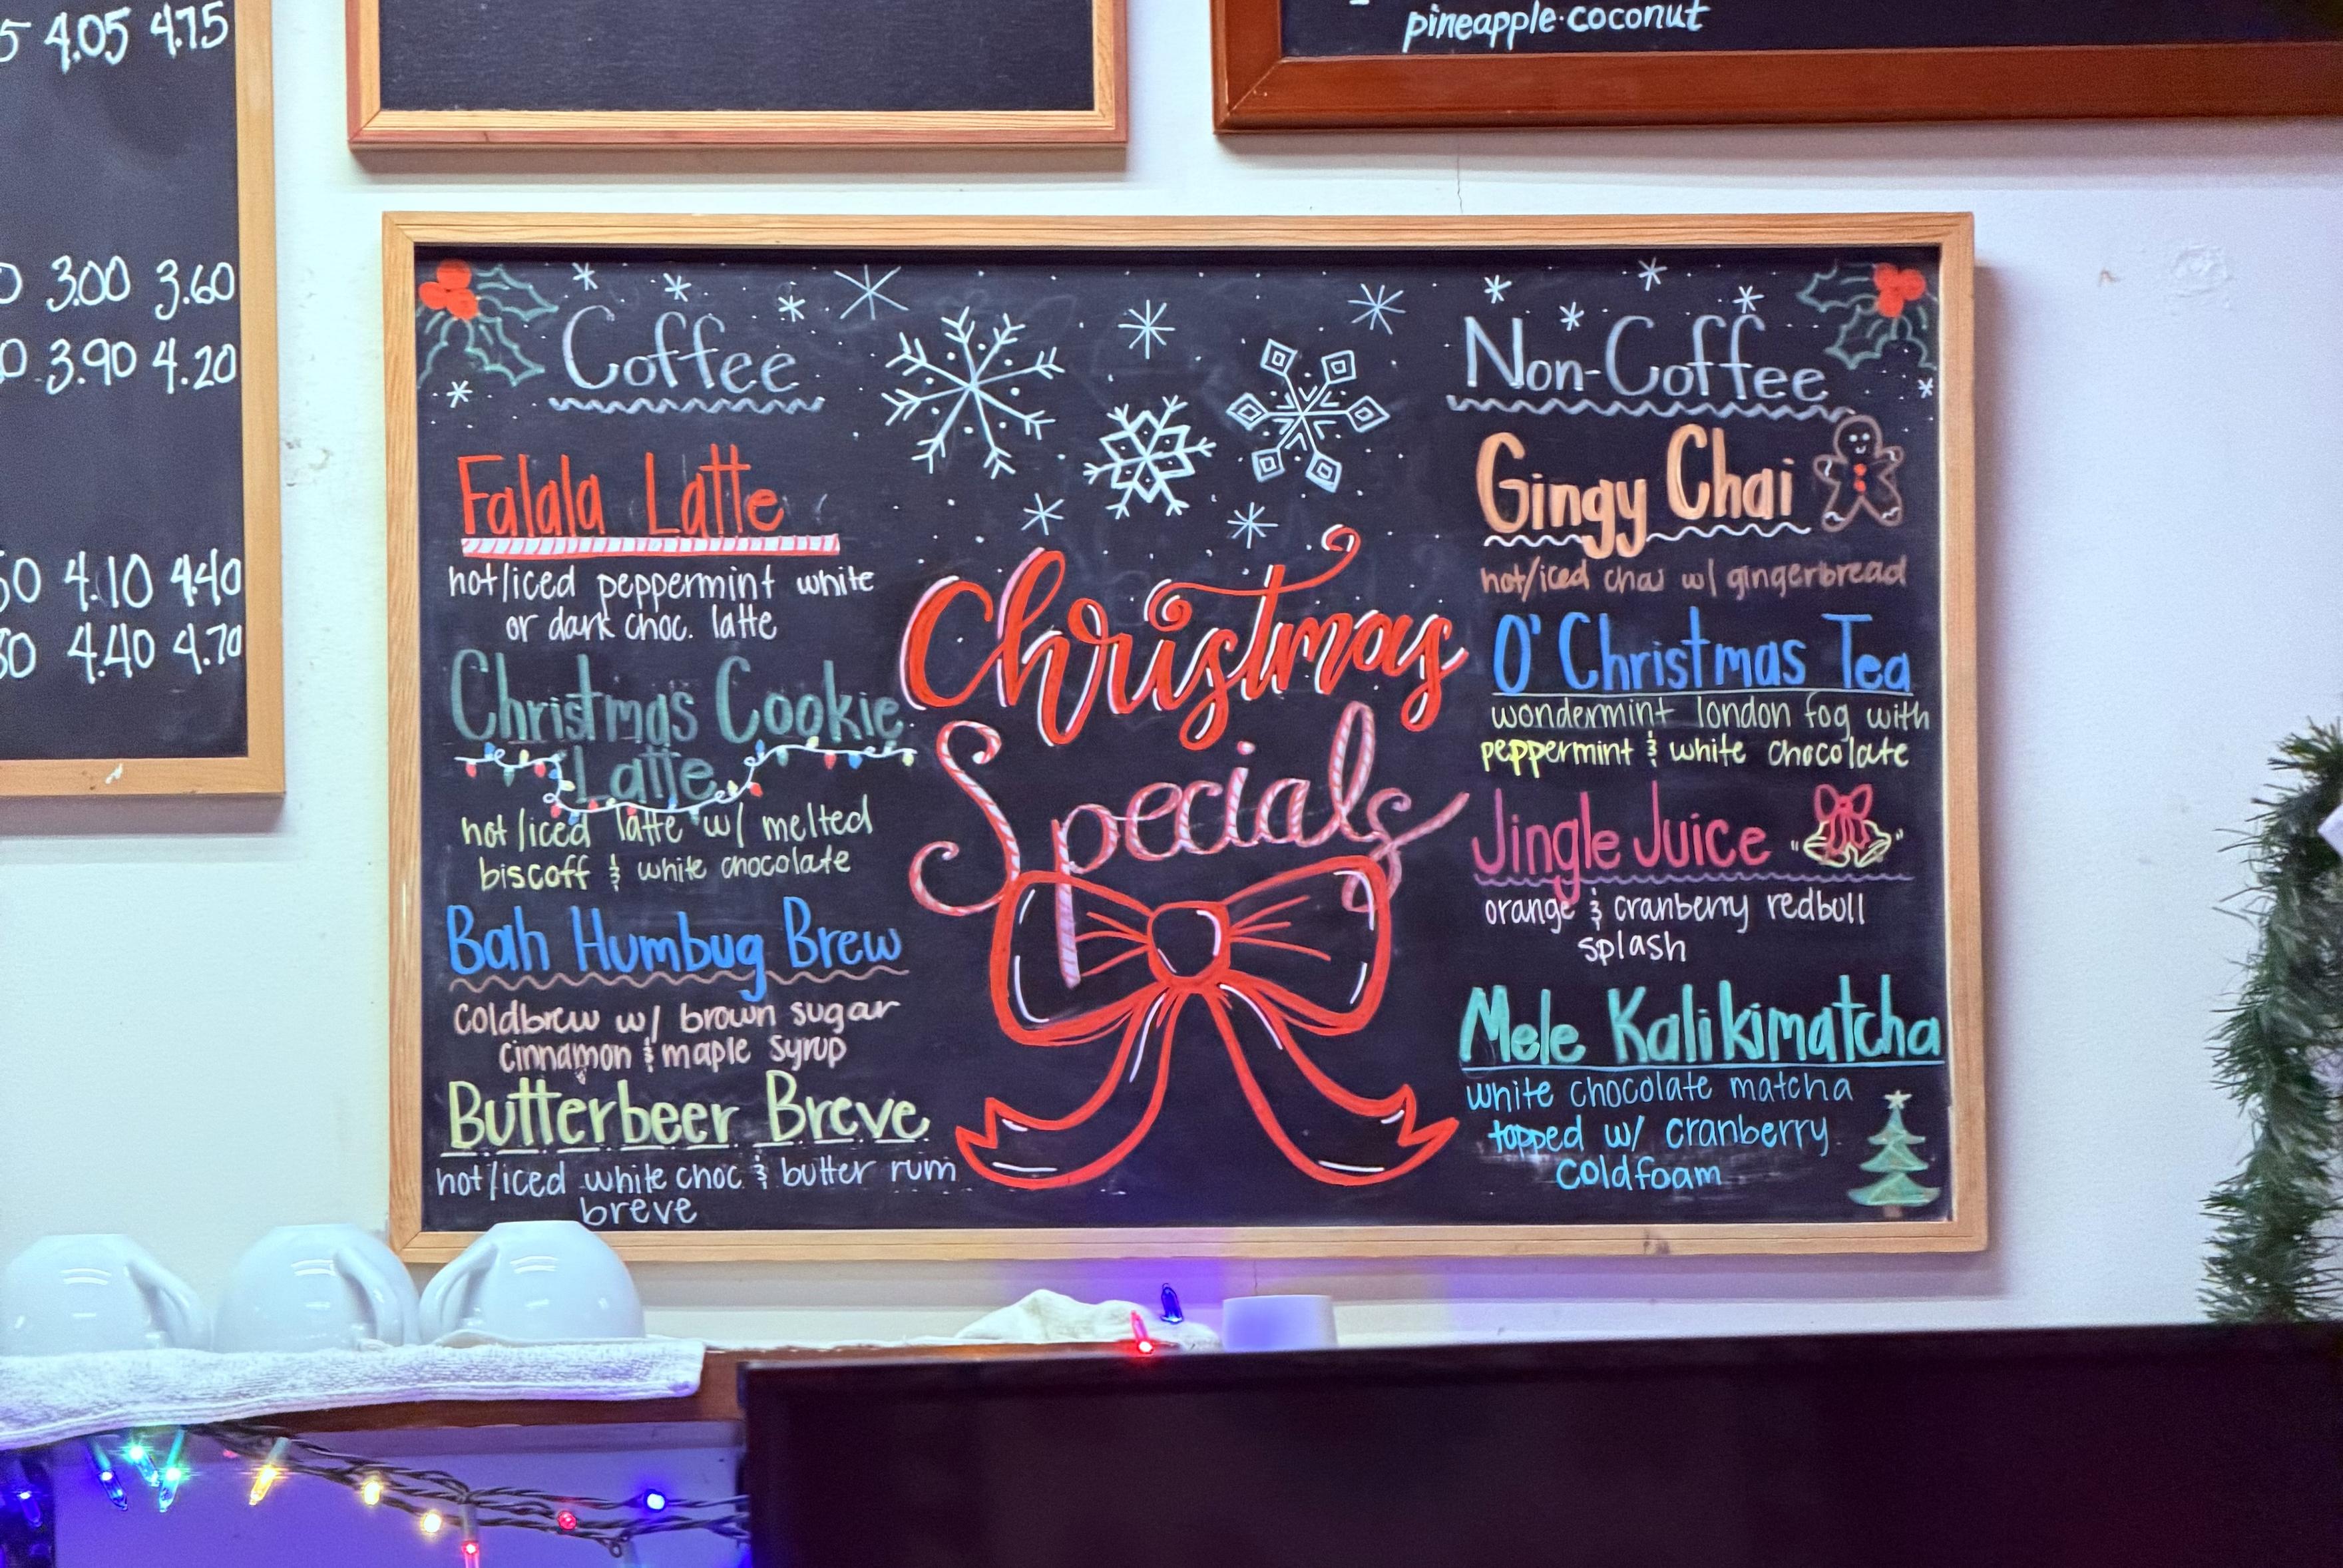 4.05 4.75
3.00 3.60
3.90 4.20
4.10 4.40
4.40 4.70
pineapple·coconut
Coffee
Falala Latte
hot/iced peppermint white
or dark choc. latte
Christmas Cookie
Latte
hot/iced latte w/ melted
biscoff & white chocolate
Bah Humbug Brew
coldbrew w/ brown sugar
cinnamon & maple syrup
Butterbeer Breve
hot/iced white choc & butter rum
breve
Christmas
Specials
Non-Coffee
Gingy Chai
hot/iced chai w/ gingerbread
O' Christmas Tea
wondermint london fog with
peppermint & white chocolate
Jingle Juice
orange & cranberry redbull
splash
Mele Kalikimatcha
white chocolate matcha
topped w/ cranberry
coldfoam